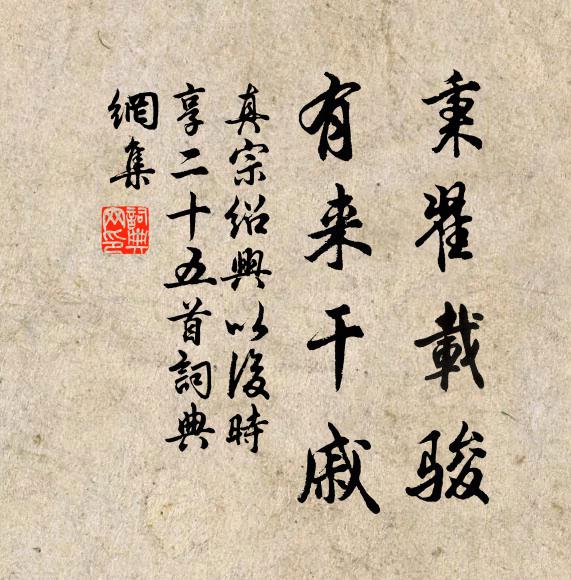 秉翟載骏
有来干戚
真宗绍興以後時
享二十五首詞典
網集
詞典網印